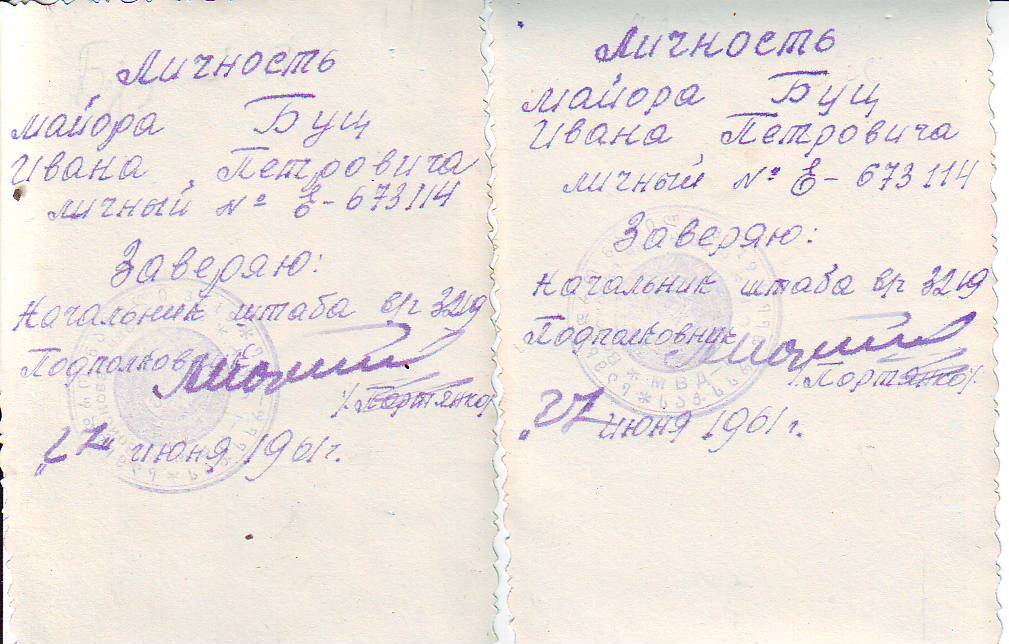 Личность
майора Бущ
Ивана Петровича
личный № Е-673114
Заверяю:
Начальник штаба в/ч 3219
Подполковник
/Портянко/
"27" июня 1961 г.
Личность
майора Бущ
Ивана Петровича
личный № Е-673114
Заверяю:
Начальник штаба в/ч 3219
Подполковник
/Портянко/
"27" июня 1961 г.
МВД